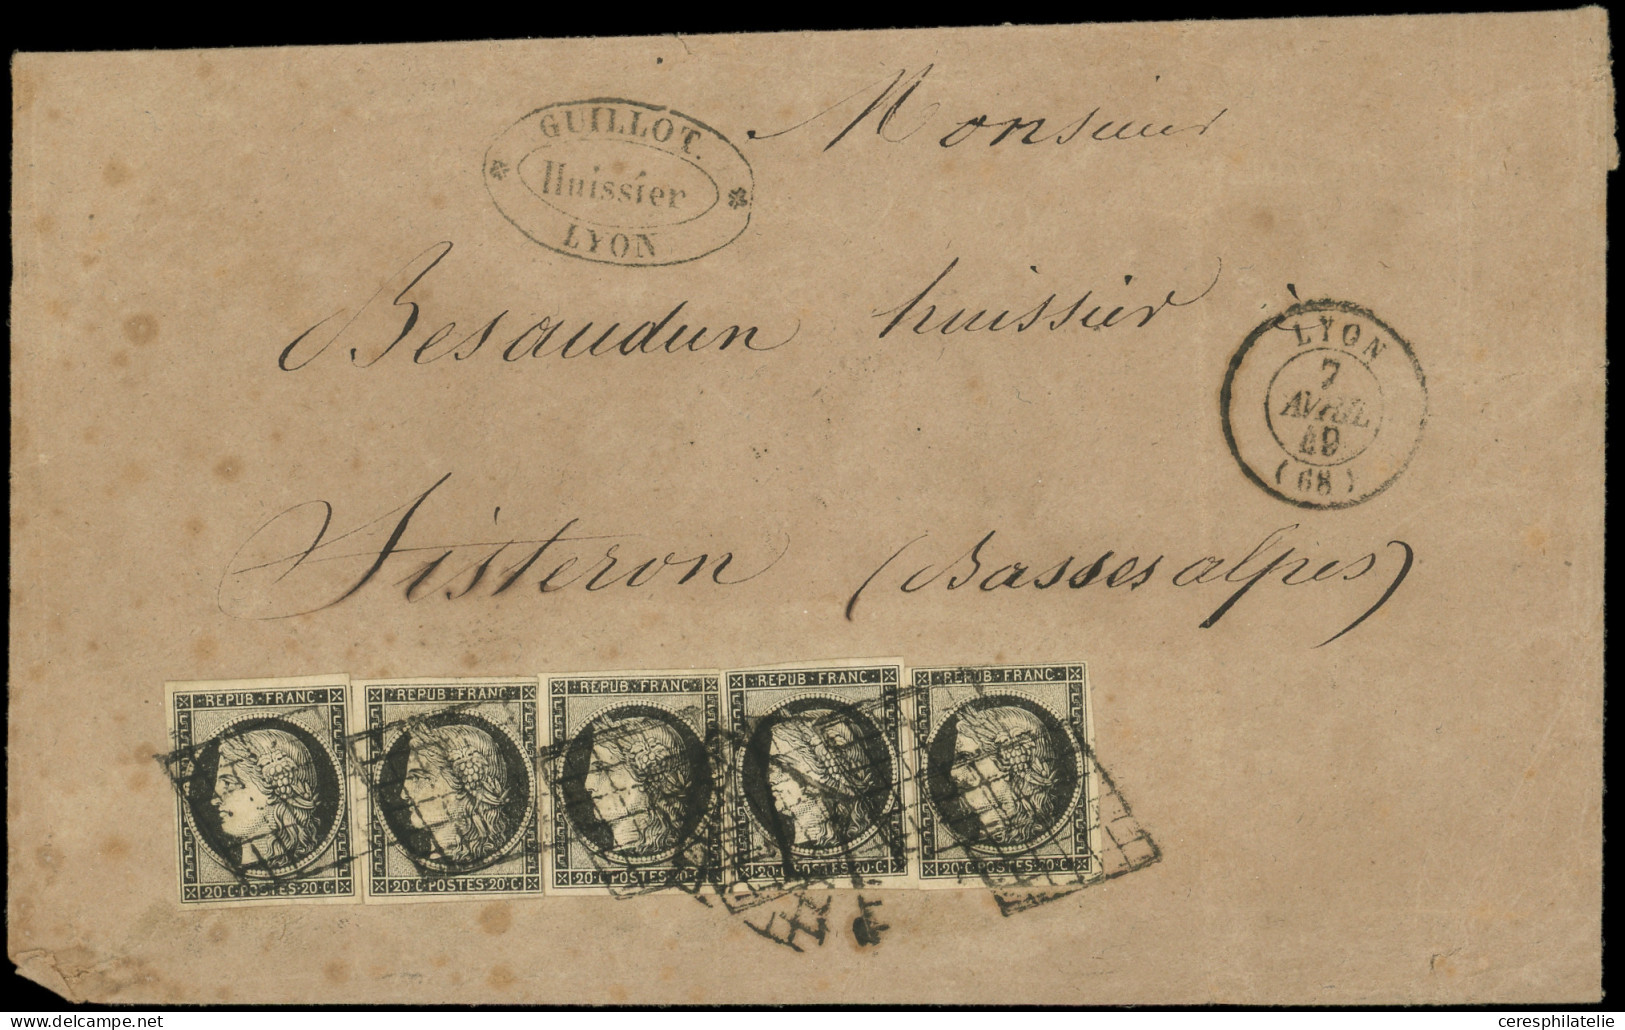 Monsieur
GUILLOT.
Huissier
LYON
Besaudun huissier
à
LYON
7
AVRIL
49
(68)
Sisteron (Basses alpes)
REPUB FRANC
20 C POSTES 20 C
REPUB FRANC
20 C POSTES 20 C
REPUB FRANC
20 C POSTES 20 C
REPUB FRANC
20 C POSTES 20 C
REPUB FRANC
20 C POSTES 20 C
ceresphilatelie